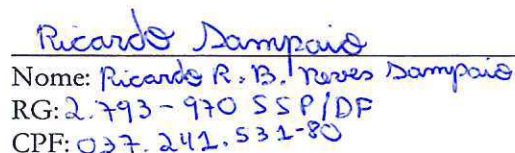 Ricardo Sampaio
Nome: Ricardo R. B. Neves Sampaio
RG: 2.793-970 SSP/DF
CPF: 037.241.531-80